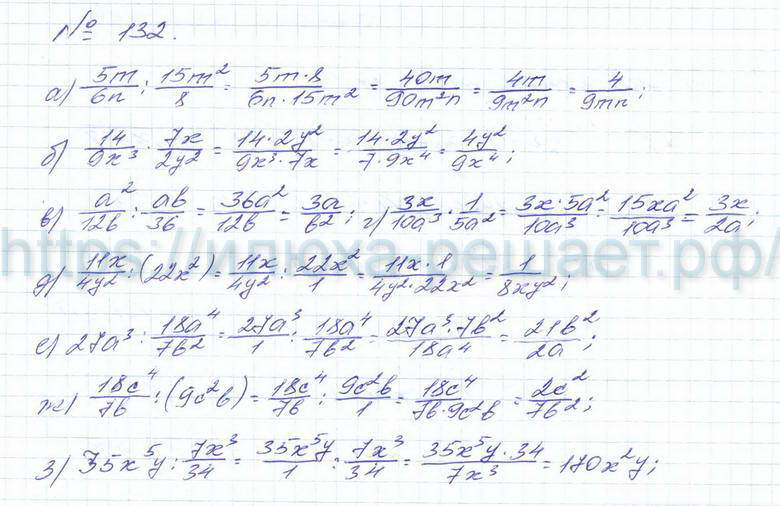 № 132.
а) 5m/6n : 15m²/8 = 5m·8/6n·15m² = 40m/90m²n = 4m/9m²n = 4/9mn;
б) 14/9x³ · 7x/2y² = 14·2y²/9x³·7x = 14·2y²/7·9x⁴ = 4y²/9x⁴;
в) a²/12b : ab/36 = 36a²/12b = 3a/b²; г) 3x/10a³ : 1/5a² = 3x·5a²/10a³ = 15xa²/10a³ = 3x/2a;
https://илюха.решает.рф/
д) 11x/4y² : (22x²) = 11x/4y² : 22x²/1 = 11x·1/4y²·22x² = 1/8xy²;
е) 27a³ : 18a⁴/7b² = 27a³/1 : 18a⁴/7b² = 27a³·7b²/18a⁴ = 21b²/2a;
ж) 18c⁴/7b : (9c²b) = 18c⁴/7b : 9c²b/1 = 18c⁴/7b·9c²b = 2c²/7b²;
з) 35x⁵y : 7x³/34 = 35x⁵y/1 : 7x³/34 = 35x⁵y·34/7x³ = 170x²y;